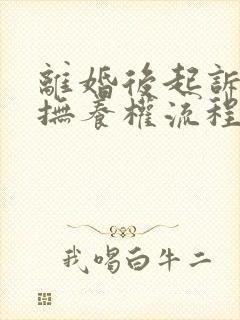 離婚後起訴
撫養權流程
我唱白牛二